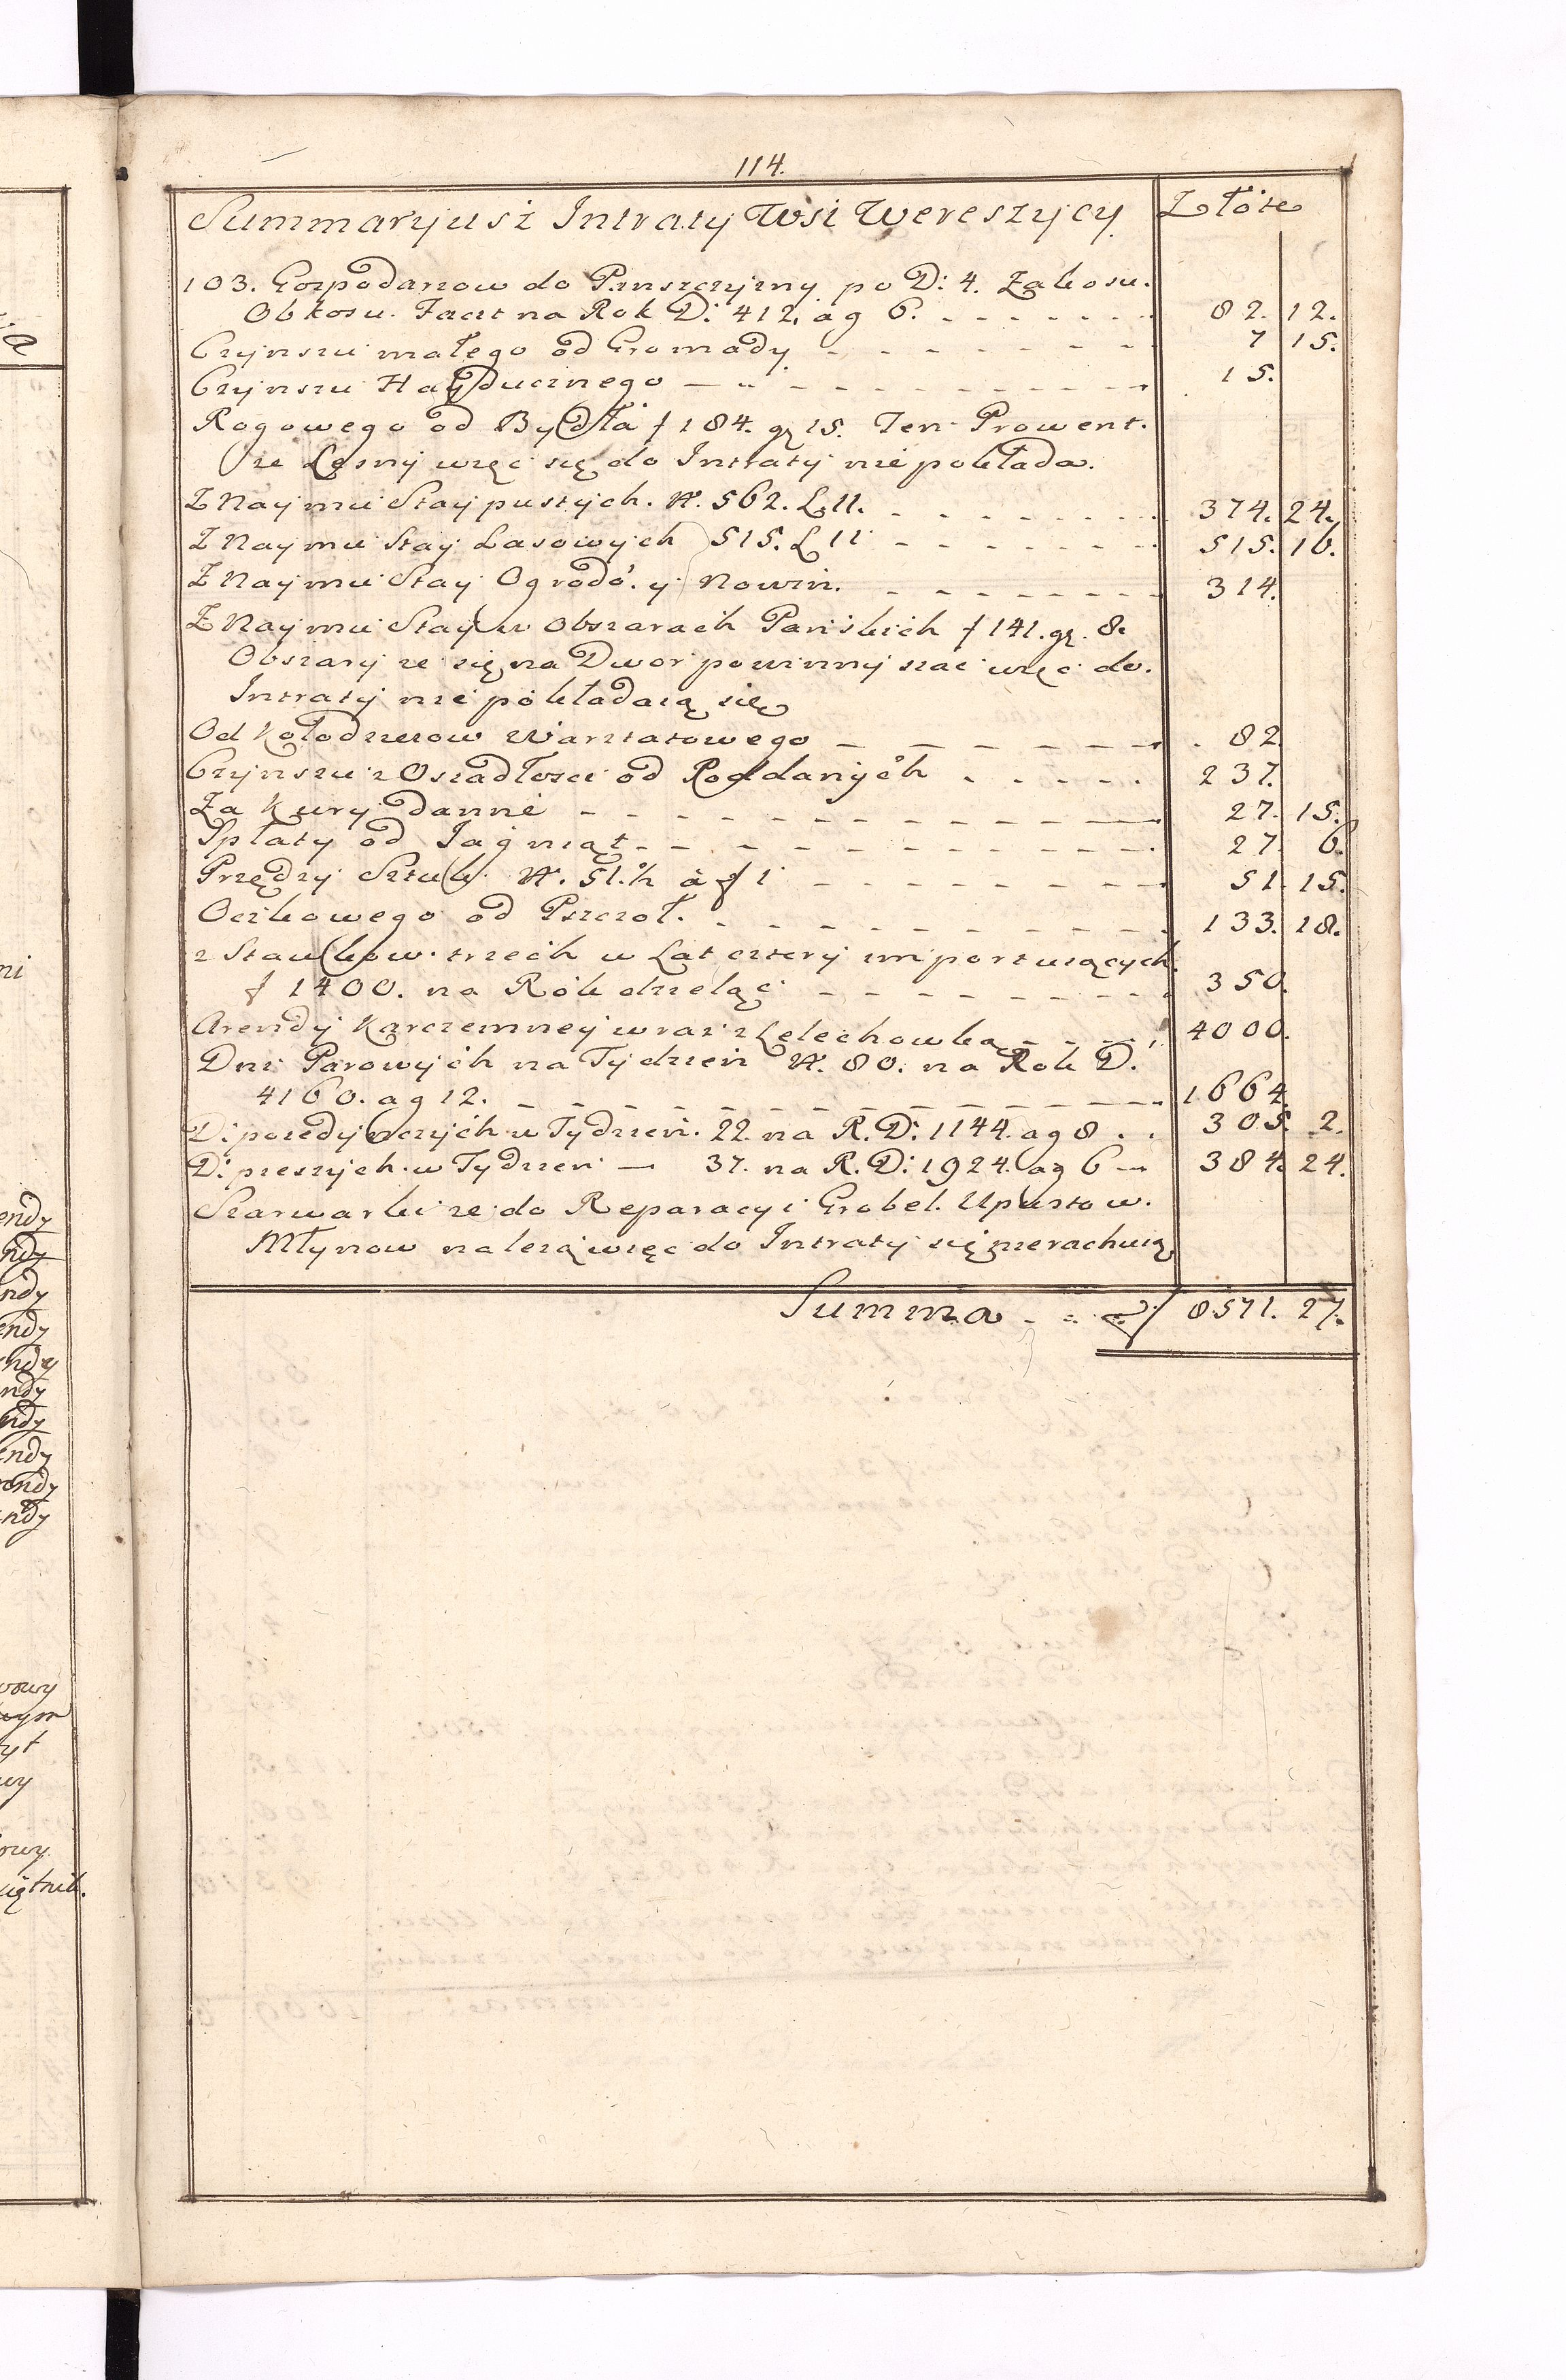 114.
Summaryusz Intraty Wsi Wereszycy Złote
103. Gospodarzow do Panszczyzny po D: 4. Zakosu.
Obkosu. Facit na Rok D: 412. a g 6. 82. 12.
Czynszu małego od Gromady 7 15.
Czynszu Hayducznego 15.
Rogowego od Bydła f 184. gr 15. Ten Prowent.
ze Lesny więc się do Intraty nie pokłada.
Z Naymu Stay pustych. N. 562. L. 11. 374. 24.
Z Naymu Stay Lasowych 515. L 11 515. 16.
Z Naymu Stay Ogrodo. y Nowin. 314.
Z Naymu Stay w Obszarach Panskich f 141. gr. 8.
Obszary ze się na Dwor powinny siac więc do.
Intraty nie pokładaią się
Od Kołodzieiow Warstatowego 82
Czynszu z Osiadłosci od Poddanych 237.
Za Kury danne 27. 15.
Spłaty od Jagniąt 27 6.
Przędzy Sztuk N. 51. ½ a f 1 51 15.
Oczkowego od Pszczoł. 133. 18.
z Stawkow trzech w Lat cztery importuiących
f 1400. na Rok dzieląc 350.
Arendy Karczemney wraz z Lelechowką 4000.
Dni Parowych na Tydzien N. 80. na Rok D.
4160. a g 12. 1664.
D: poiedynczych w Tydzien. 22. na R. D: 1144. a g 8 305 2.
D: pieszych w Tydzien — 37. na R. D: 1924. a g 6 384. 24.
Szarwarki ze do Reparacyi Grobel. Upustow.
Młynow należą więc do Intraty się nierachuią
Summa f 8571. 27.